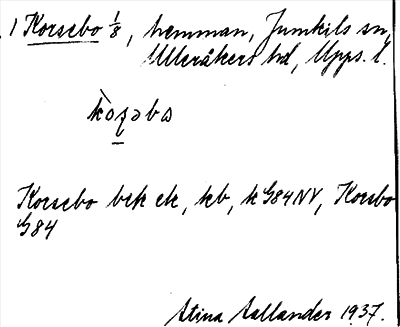 1 Korsebo 1/8, hemman, Jumkils sn,
Ulleråkers hd, Upps. l.
Korsebo bek ek, kb, k G84 NV, Korsbo
G84
Stina Aallander 1937.